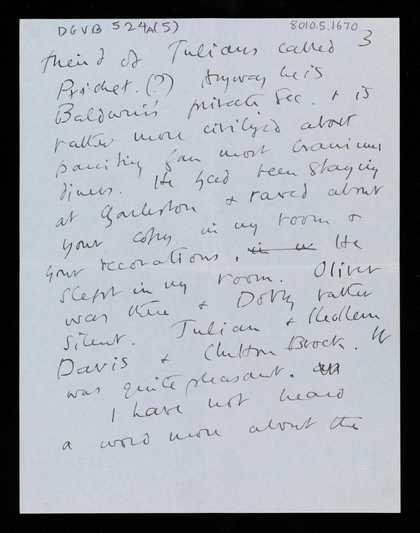 DGVB 524A(5) 8010.5.1670
3
friend of Julians called
Prichet. (?) Anyway he is
Baldwin's private Sec. + is
rather more civilized about
painting than most
diners. He had been staying
at Charleston + raved about
your copy in my room +
your decorations. He
slept in my room. Oliver
was there + Dotty rather
silent. Julian +
Davis + Clutton Brock. It
was quite pleasant.
I have not heard
a word more about the